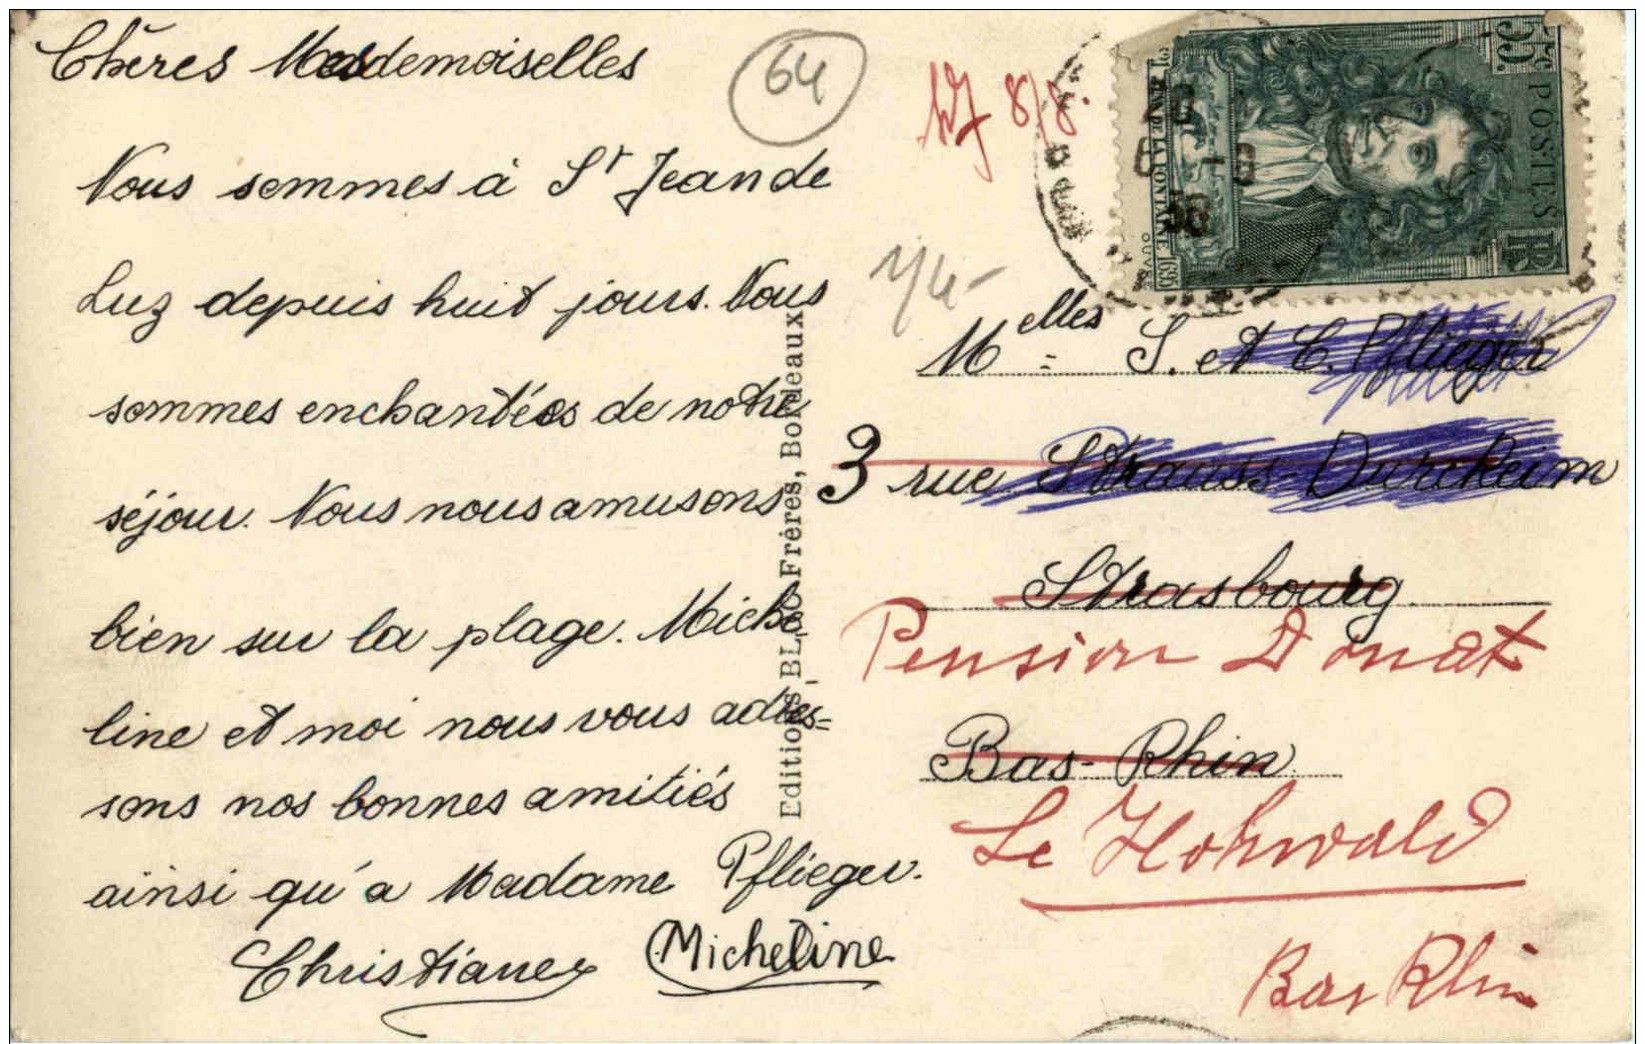 Chères Mesdemoiselles
Nous sommes à St Jean de
Luz depuis huit jours. Nous
sommes enchantées de notre
séjour. Nous nous amusons
bien sur la plage. Miche
line et moi nous vous adres=
sons nos bonnes amitiés
ainsi qu'à Madame Pflieger.
Christiane Micheline
64
8/8.
Editions BLOC Frères, Bordeaux
POSTES RF
55c
JEAN DE LA FONTAINE
Melles S. et C. Pflieger
3 rue Strauss-Durckeim
Strasbourg
Pension Donat
Bas-Rhin
Le Hohwald
Bas Rhin